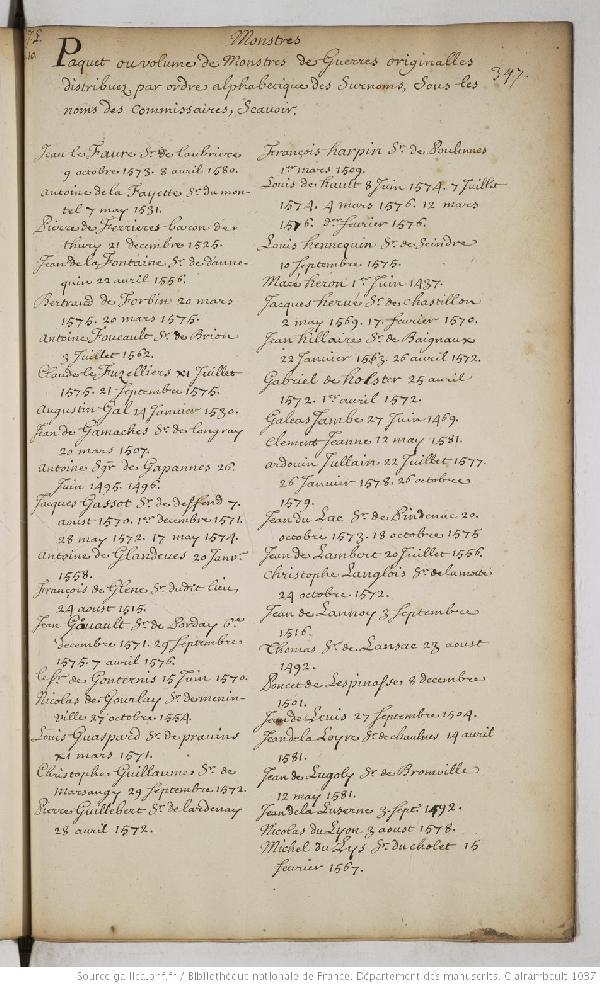 Monstres
Paquet ou volume de Monstres de Guerres originalles
distribuez par ordre alphabetique des Surnoms, Sous les
noms des Commissaires, Scavoir.
347.
Jean le Faure Sr. de Laubriere
9 octobre 1573. 8 avril 1580.
Antoine de la Fayette Sr. du mon-
tel 7 may 1531.
Pierre de Ferrieres baron de
thury 21 decembre 1525.
Jean de la Fontaine Sr. de danne-
quin 22 avril 1556.
Bertrand de Forbin 20 mars
1575. 20 mars 1575.
Antoine Foucault Sr. de Brion
3 Juillet 1562.
Claude le Fuzelliers x1 Juillet
1575. 21 Septembre 1575.
Augustin Gal 24 Janvier 1530.
Jean de Gamaches Sr. de Longray
20 mars 1507.
Antoine Sgr de Gapannes 26
Juin 1495. 1496.
Jacques Gassot Sr. de deffend 7.
aoust 1570. 1er decembre 1571.
28 may 1572. 17 may 1574.
Antoine de Glandeves 20 Janvr.
1558.
François de Glene Sr. dudit lieu
24 aoust 1515.
Jean Gouault Sr. de
decembre 1571. 29 Septembre
1575. 7 avril 1576.
le Sr. de Gonternis 15 Juin 1570.
Nicolas de Gourlay Sr.
ville 27 octobre 1554.
Louis Guaspard Sr. de pravins
x1 mars 1571.
Christophe Guillaume Sr. de
Marsangy 29 Septembre 1572.
Pierre Guillebert Sr. de Lardenay
28 avril 1572.
François harpin Sr. de
1er mars 1509.
Louis de hault 8 Juin 1574. 7 Juillet
1574. 4 mars 1576. 12 mars
1576. fevrier 1576.
Louis hennequin Sr. de
10 Septembre 1575.
Macé heron 1er Juin 1437.
Jacques hervé Sr. de Chastillon
2 may 1569. 17. fevrier 1570.
Jean hillaire Sr. de Baignaux
22 Janvier 1563. 26 avril 1572.
Gabriel de holster 25 avril
1572. 1er avril 1572.
Galeas Jambe 27 Juin 1469.
Clement Jeanne 12 may 1581.
ardouin Jullain 22 Juillet 1577.
26 Janvier 1578. 26 octobre
1579.
Jean du Lac Sr. de 20.
octobre 1573. 18 octobre 1575
Jean de Lambert 20 Juillet 1556.
Christophe Langlois Sr. de lamotte
24 octobre 1572.
Jean de Lannoy 3 Septembre
1516.
Thomas Sr. de Lansac 23 aoust
1492.
Poncet de Lespinasse 8 decembre
1501.
Jean de Levis 27 Septembre 1504.
Jean de la Loyre Sr. de 14 avril
1581.
Jean de Lugoly Sr. de Bromville
12 may 1581.
Jean de la Luserne 3. Sept. 1492.
Nicolas du Lyon 3 aoust 1578.
Michel du Lys Sr. du cholet 15
fevrier 1567.
Source gallica.bnf.fr / Bibliothèque nationale de France. Département des manuscrits. Clairambault 1037